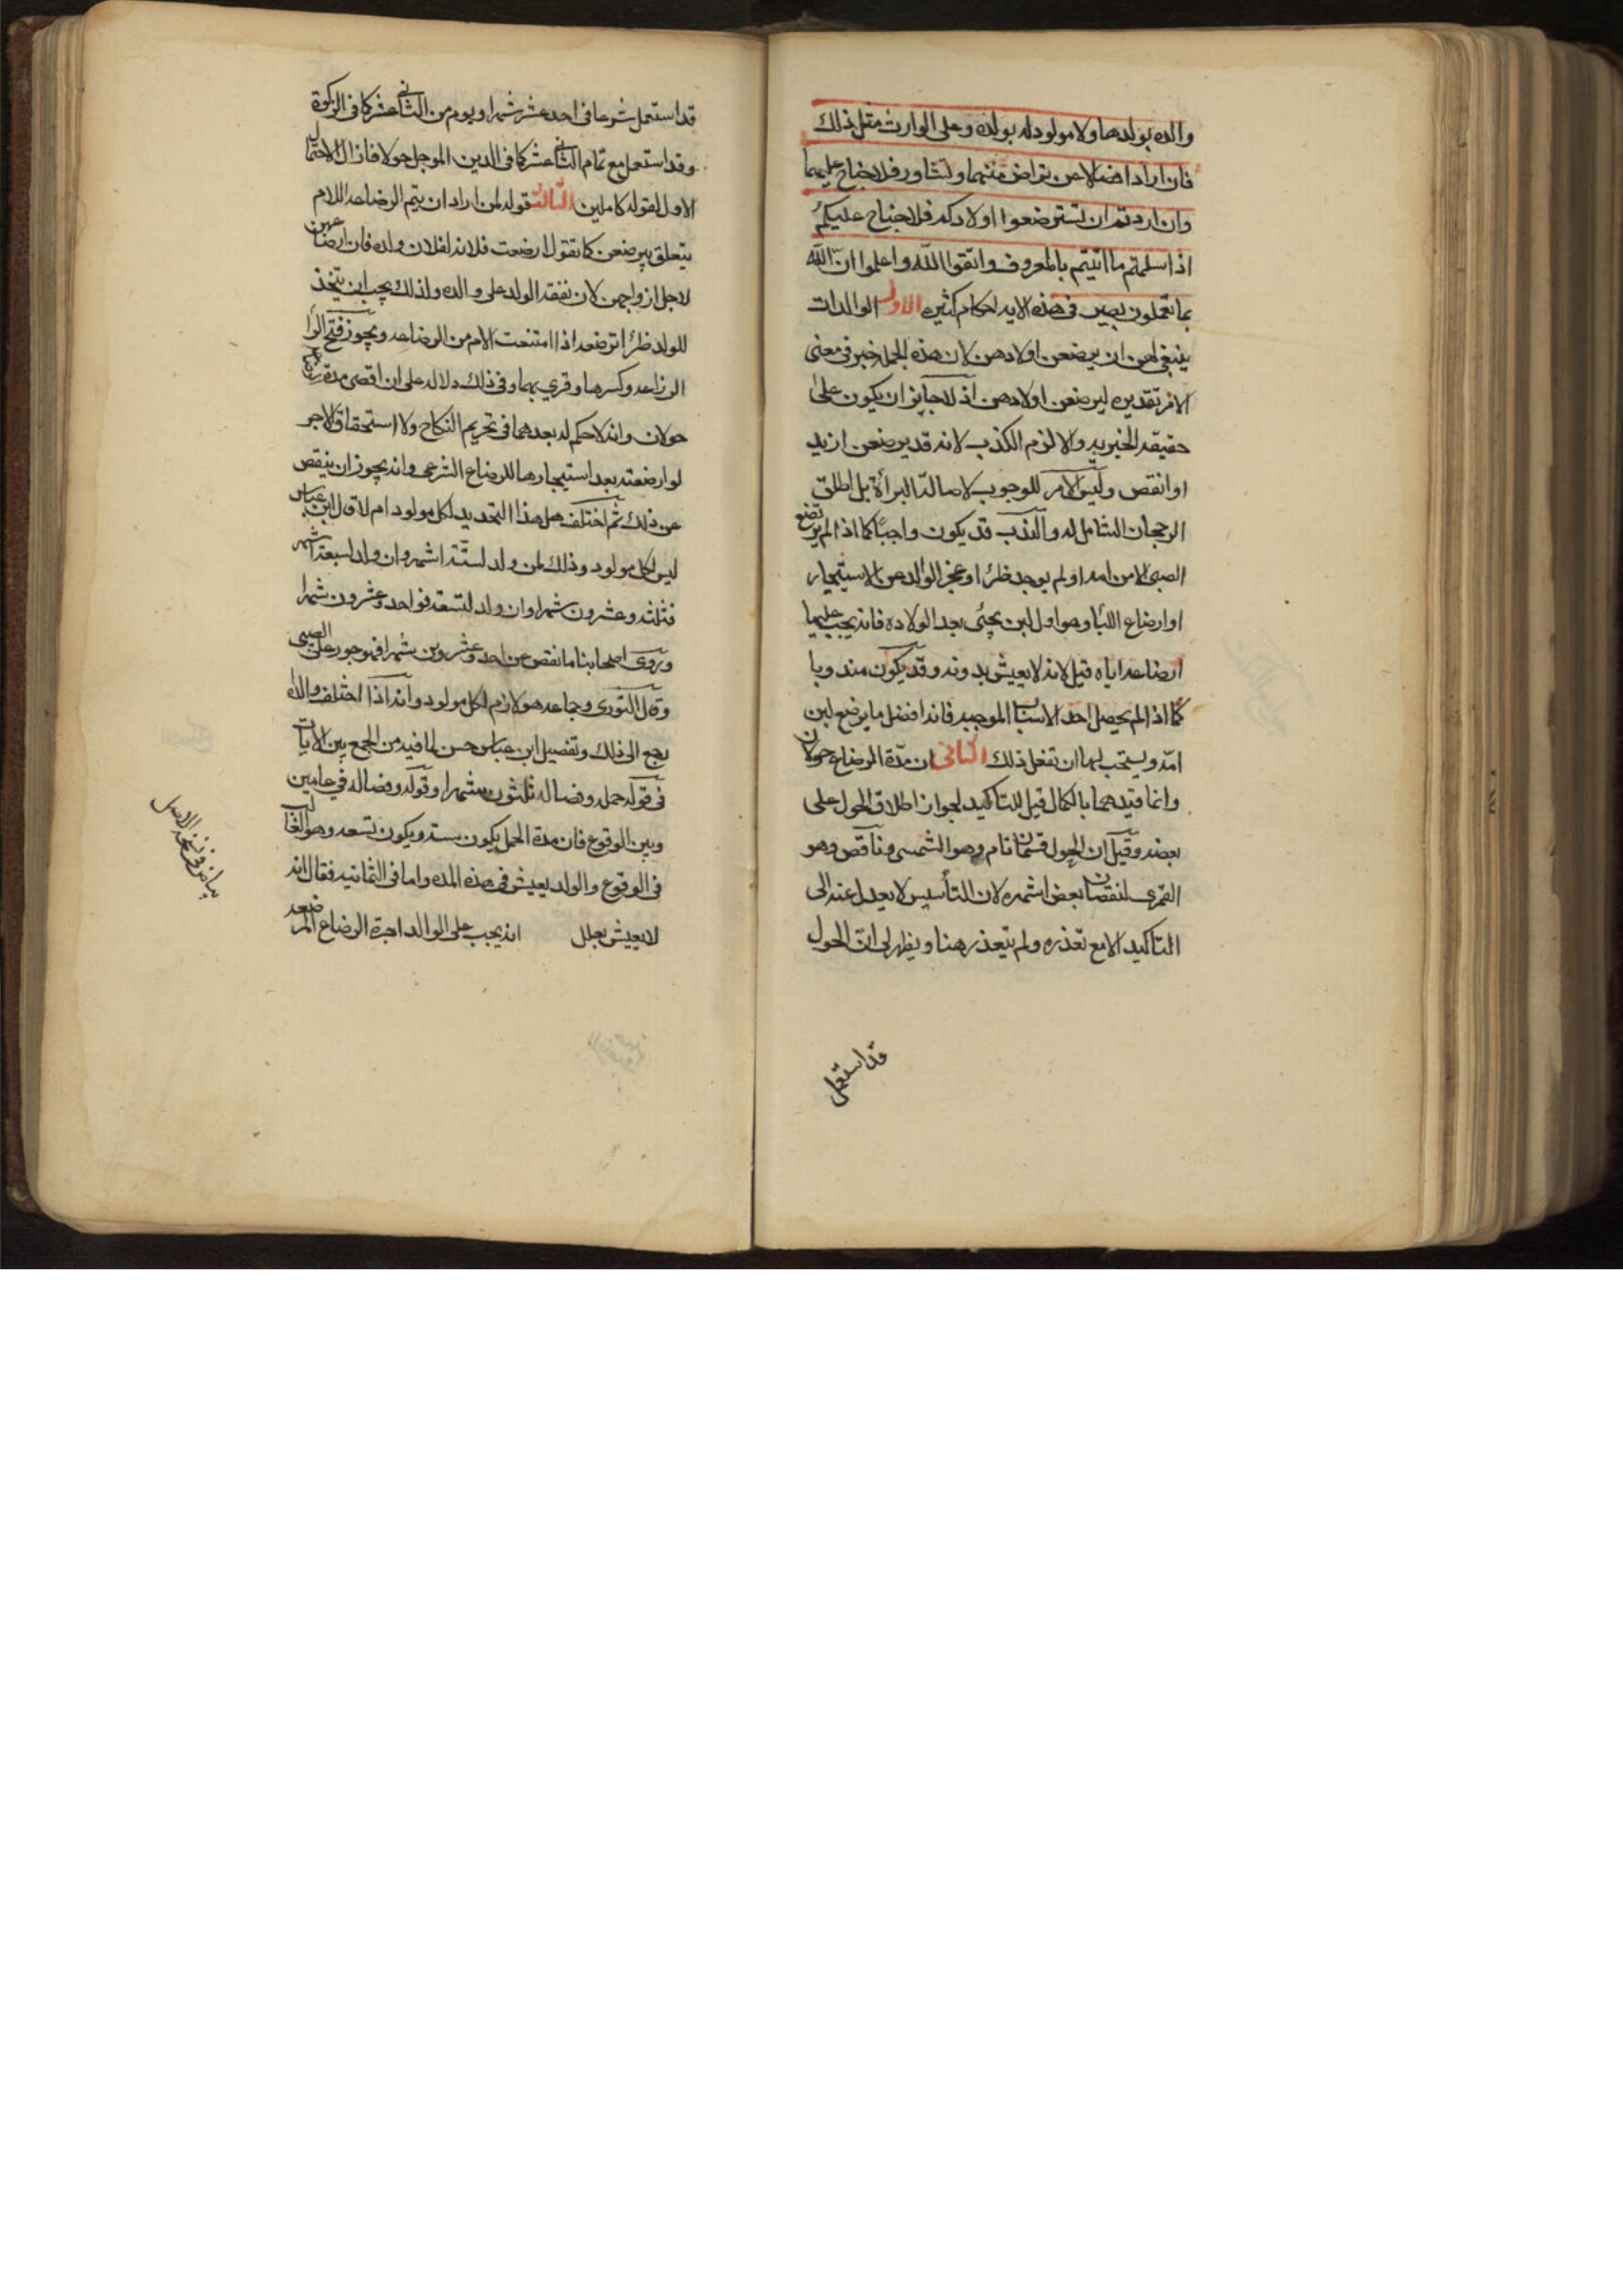 والده بولدها ولا مولود له بولده وعلى الوارث مثل ذلك
فان ارادا فصالا عن تراض منهما وتشاور فلا جناح عليهما
وان اردتم ان تسترضعوا اولادكم فلا جناح عليكم
اذا سلمتم ما اتيتم بالمعروف واتقوا الله واعلموا ان الله
بما تعملون بصير في هذه الايه احكام كثيره الاول الوالدات
ينبغي لهن ان يرضعن اولادهن لان هذه الجمله خبر في معنى
الامر تقديره ليرضعن اولادهن اذ لا جايز ان يكون على
حقيقه الخبريه والا لزم الكذب لانه قد يرضعن ازيد
او انقص وليس الامر للوجوب لاصالة البرأة بل اطلق
الرجحان الشامل له والندب قد يكون واجبا كما اذا لم يرتضع
الصبي الا من امه او لم يوجد ظئرا وعجز الوالد عن الاستيجار
او ارضاع اللبأ وهو اول لبن يجئ بعد الولاده فانه يجب عليها
ارضاعه اياه قيل لانه لا يعيش بدونه وقد يكون مندوبا
كما اذا لم يحصل احد الاسباب الموجبه فانه افضل ما يرضع لبن
امه ويستحب لها ان تفعل ذلك الثاني ان مدة الرضاع حولان
وانما قيدهما بالكمال قيل للتاكيد لجواز اطلاق الحول على
بعضه وقيل ان الحول قسمان تام وهو الشمسي وناقص وهو
القمري لنقصان بعض اشهره لان التأسيس لا يعدل عنه الى
التاكيد الا مع تعذره ولم يتعذر هنا ويظهر لي ان الحول
قد استعمل
قد استعمل شرعا في احد عشر شهرا ويوم من الثاني عشر كما في الزكوة
وقد استعمل مع تمام الثاني عشر كما في الدين الموجل حولا فازال الاحتمال
الاول لقوله كاملين الثالث قوله لمن اراد ان يتم الرضاعه اللام
يتعلق بيرضعن كما تقول ارضعت فلانه لفلان ولده فان ارضاعهن
لاجل ازواجهن لان نفقه الولد على والده ولذلك يجب ان يتخذ
للولد ظئرا ترضعه اذا امتنعت الام من الرضاعه ويجوز فتح الراء
الرضاعه وكسرها وقري بهما وفي ذلك دلاله على ان اقصى مدة
حولان وانه لا حكم له بعدهما في تحريم النكاح ولا استحقاق الاجر
لو ارضعته بعد استيجارها للرضاع الشرعي وانه يجوز ان ينقص
عن ذلك ثم اختلف هل هذا التحديد لكل مولود ام لا قال ابن عباس
ليس لكل مولود وذلك لمن ولد لستة اشهر وان ولد لسبعة اشهر
فثلثه وعشرون شهرا وان ولد لتسعه فواحد وعشرون شهرا
وروى اصحابنا ما نقص عن احد وعشرين شهرا فهو جور على الصبي
وقال الثوري وجماعه هو لازم لكل مولود وانه اذا اختلف والداه
رجع الى ذلك وتفصيل ابن عباس حسن لما فيه من الجمع بين الايات
في قوله حمله وفصاله ثلثون شهرا وقوله وفصاله في عامين
وبين الوقوع فان مدة الحمل يكون سته ويكون تسعه وهو الغالب
في الوقوع والولد يعيش في هذه المده واما في الثمانيه فقال انه
لا يعيش بعلل انه يجب على الوالد اجرة الرضاع المرضعه
بياض في نسخه الاصل